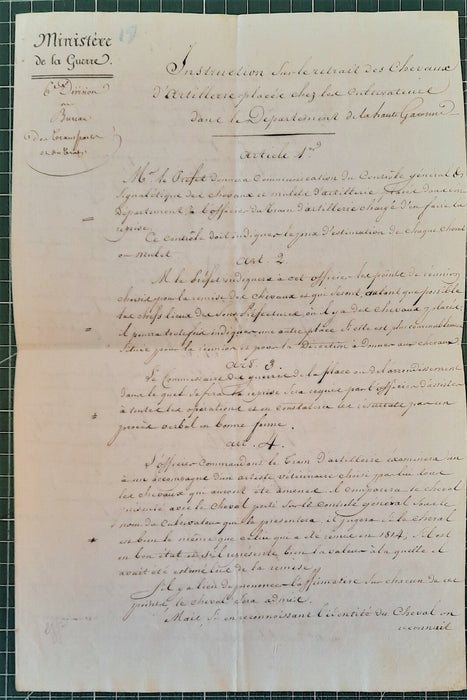 Ministère
de la Guerre.
6e Division
Bureau
des Transports
19
Instruction sur le retrait des Chevaux
d'Artillerie placés chez les Cultivateurs
dans le Département de la haute Garonne
Article 1er
Mr. le Préfet donnera Communication du Contrôle général &
Signalétique des chevaux et mulets d'artillerie placés dans son
Département à l'officier du train d'artillerie chargé d'en faire la
reprise.
Ce contrôle doit indiquer le prix d'estimation de chaque cheval
ou mulet.
art. 2
M. le Préfet indiquera à cet officier les points de réunion
choisis pour la remise des Chevaux et qui seront, autant que possible
les chefs lieux de Sous Préfecture où il y a des chevaux placés,
il pourra toutefois indiquer une autre place si elle est plus convenablement
située pour la réunion et pour la Direction à donner aux chevaux.
art. 3.
Le Commissaire des guerres de la place ou de l'arrondissement
dans lequel se fera la reprise sera requis par l'officier d'assister
à toutes les opérations et en constatera les résultats par un
procès verbal en bonne forme.
art. 4.
L'officier Commandant le Train d'artillerie examinera un
à un accompagné d'un artiste vétérinaire choisi par lui tous
les chevaux qui auront été amenés. il comparera le cheval
présenté avec le cheval porté sur le contrôle général sous le
nom du Cultivateur qui le présentera. il jugera si le cheval
est bien le même que celui qui a été remis en 1814, s'il est
en bon état et s'il représente bien la valeur à la quelle il
avait été estimé lors de la remise
S'il y a lieu de prononcer l'affirmative sur chacun de ces
points, le cheval sera admis.
Mais, si en reconnaissant l'identité du Cheval on
reconnait